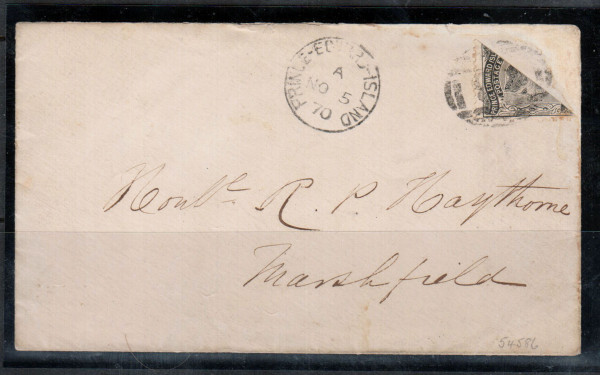 PRINCE-EDWARD-ISLAND
A
NO 5
70
PRINCE EDWARD ISL
POSTAGE
Honble. R. P. Haythorne
Marshfield
54586